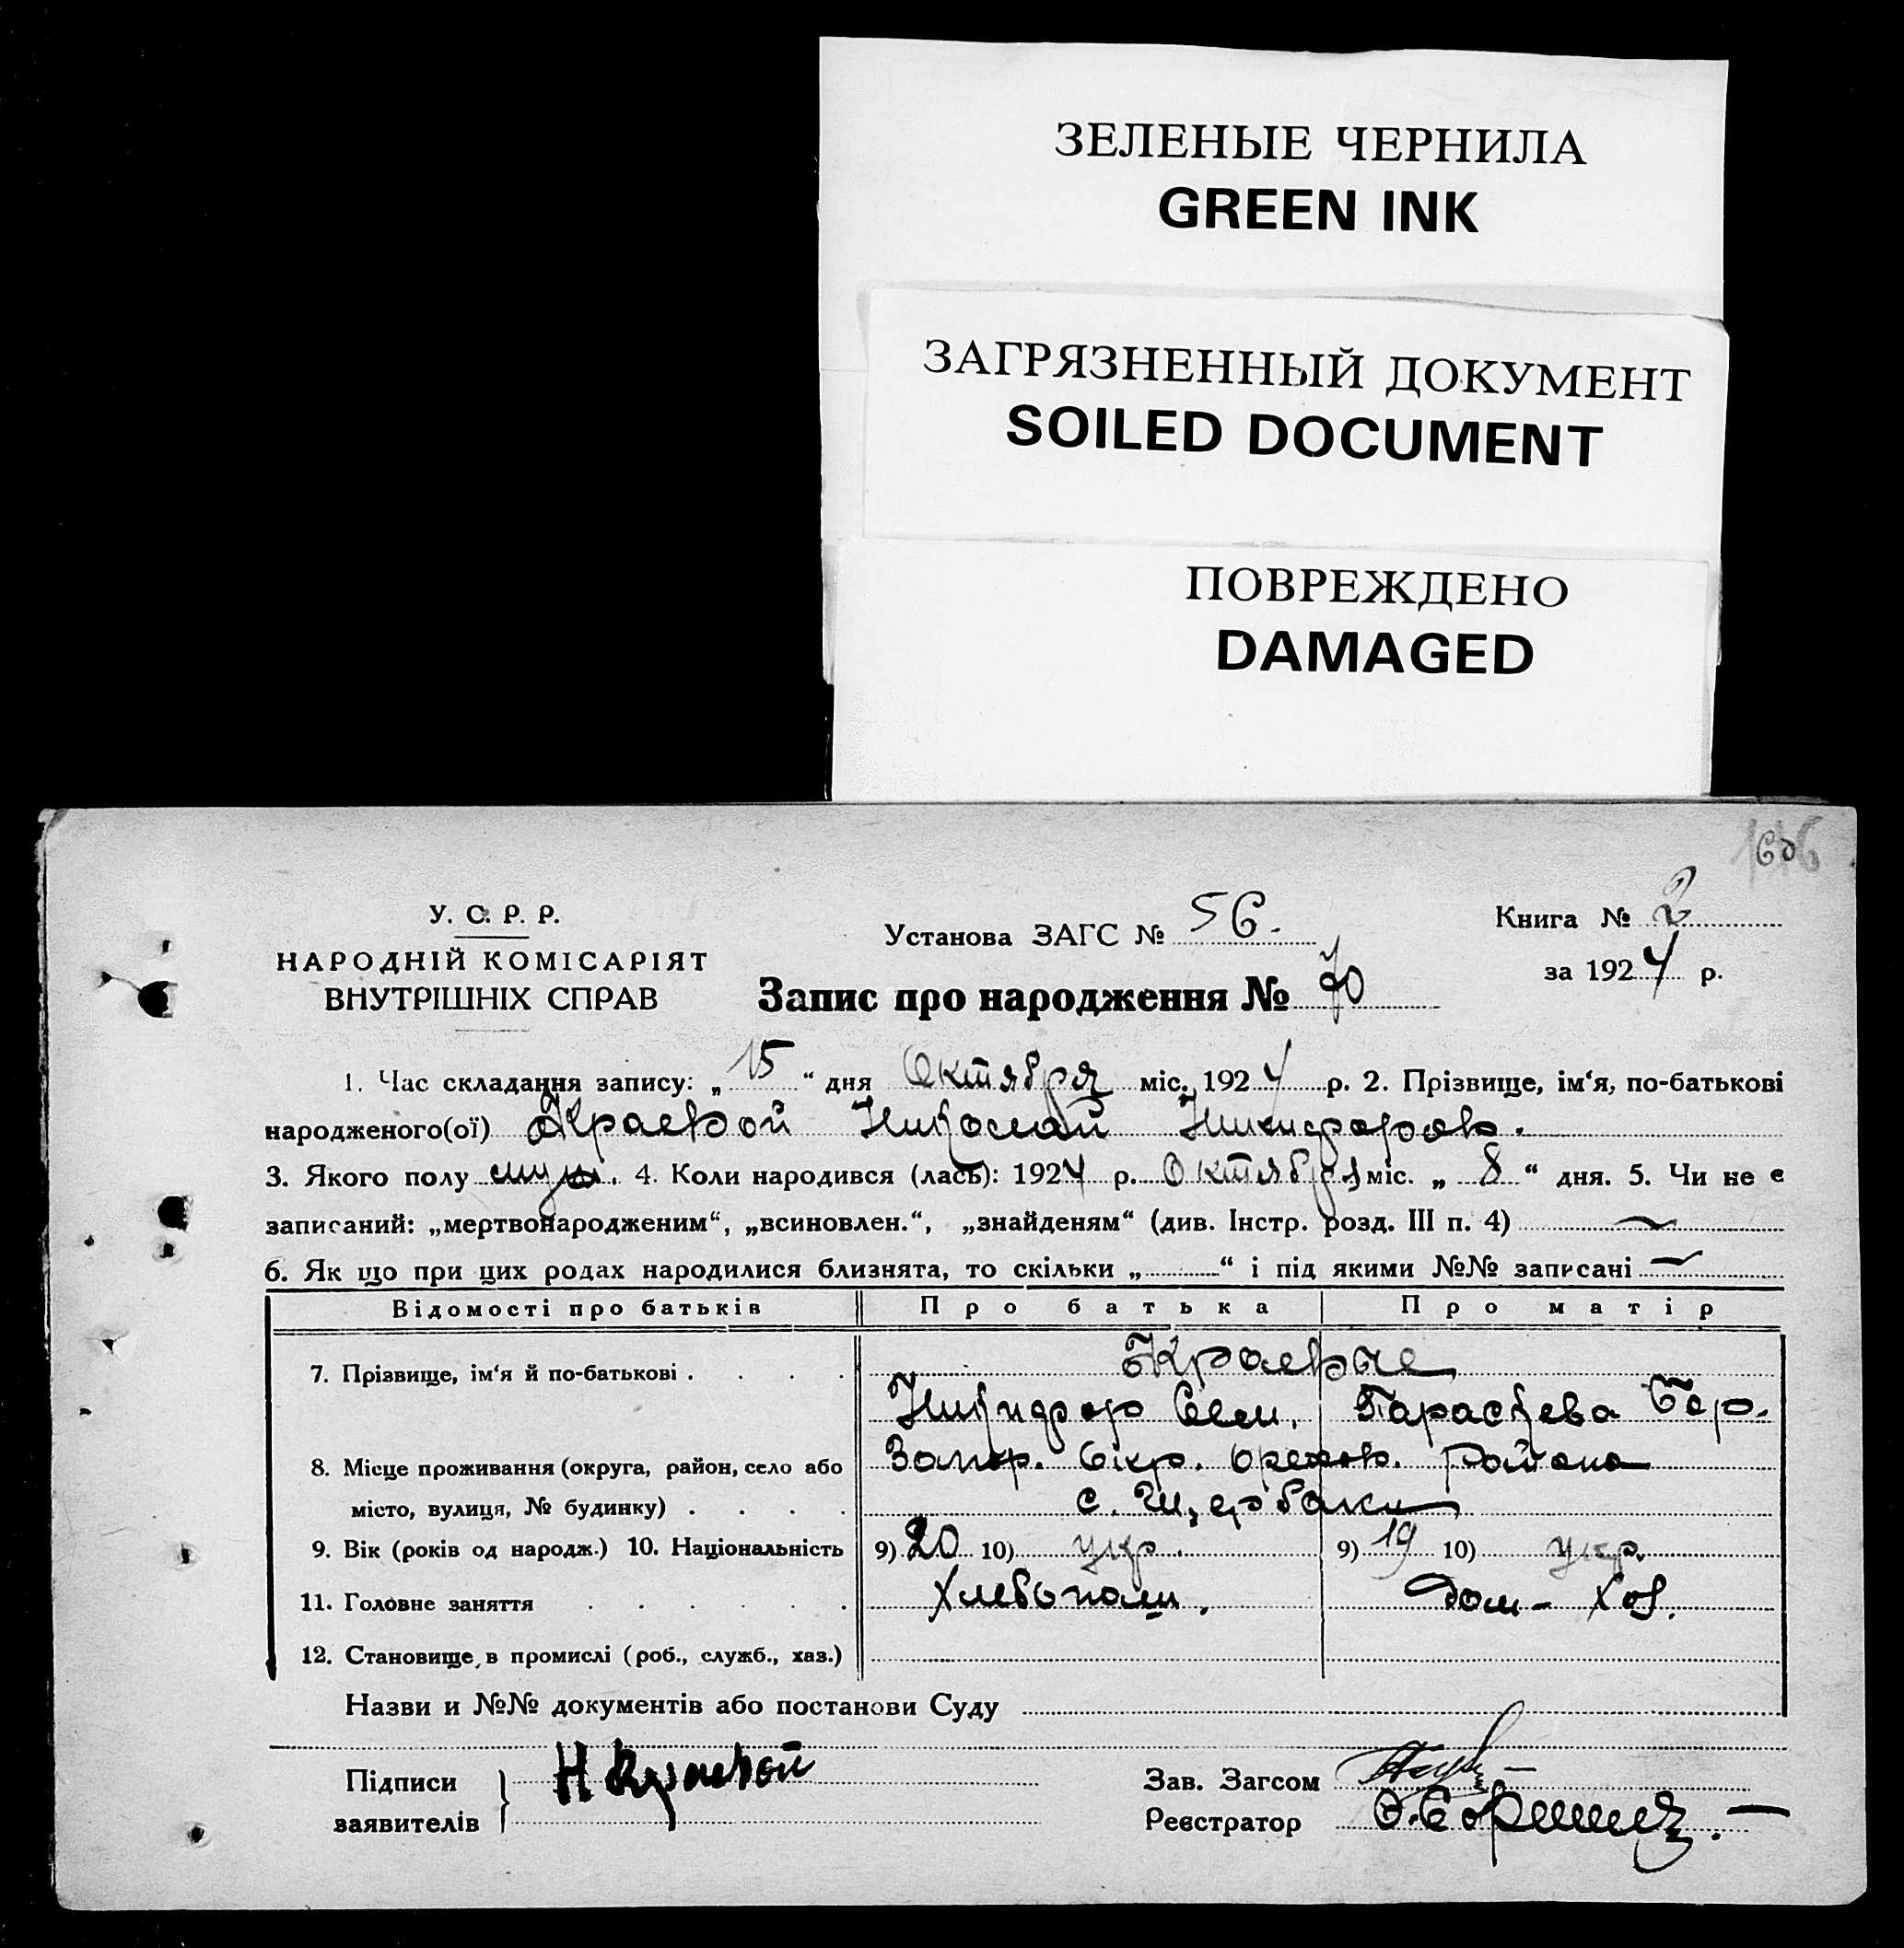 ЗЕЛЕНЫЕ ЧЕРНИЛА
GREEN INK
ЗАГРЯЗНЕННЫЙ ДОКУМЕНТ
SOILED DOCUMENT
ПОВРЕЖДЕНО
DAMAGED
У. С. Р. Р.
НАРОДНІЙ КОМІСАРІЯТ
ВНУТРІШНІХ СПРАВ
Установа ЗАГС № 56.
Книга № 2
за 1924 р.
Запис про народження № 70
1. Час складання запису: „15“ дня Октября міс. 1924 р. 2. Прізвище, ім‘я, по-батькові
народженого(ої) Краевой Николай Никифоров.
3. Якого полу муж. 4. Коли народився (лась): 1924 р. Октября міс. „8“ дня. 5. Чи не є
записаний: „мертвонародженим“, „всиновлен.“, „знайденям“ (див. Інстр. розд. III п. 4) —
6. Як що при цих родах народилися близнята, то скільки „......“ і під якими №№ записані —
Відомості про батьків Про батька Про матір
7. Прізвище, ім‘я й по-батькові . . . . Краевые
Никифор Сем. Параскева
8. Місце проживання (округа, район, село або Запор. Окр. Орехов. района
місто, вулиця, № будинку) . . . . с. Щербаки
9. Вік (років од народж.) 10. Національність 9) 20 10) укр. 9) 19 10) укр.
11. Головне заняття . . . . . . Хлебопаш. Дом-хоз.
12. Становище в промислі (роб., служб., хаз.)
Назви и №№ документів або постанови Суду
Підписи Н Краевой Зав. Загсом
заявителів Реєстратор